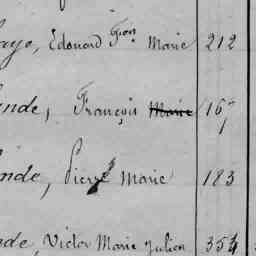 Edouard Fçon Marie 212
François Marie 16
Pierre Marie 183
Victor Marie Julien 354